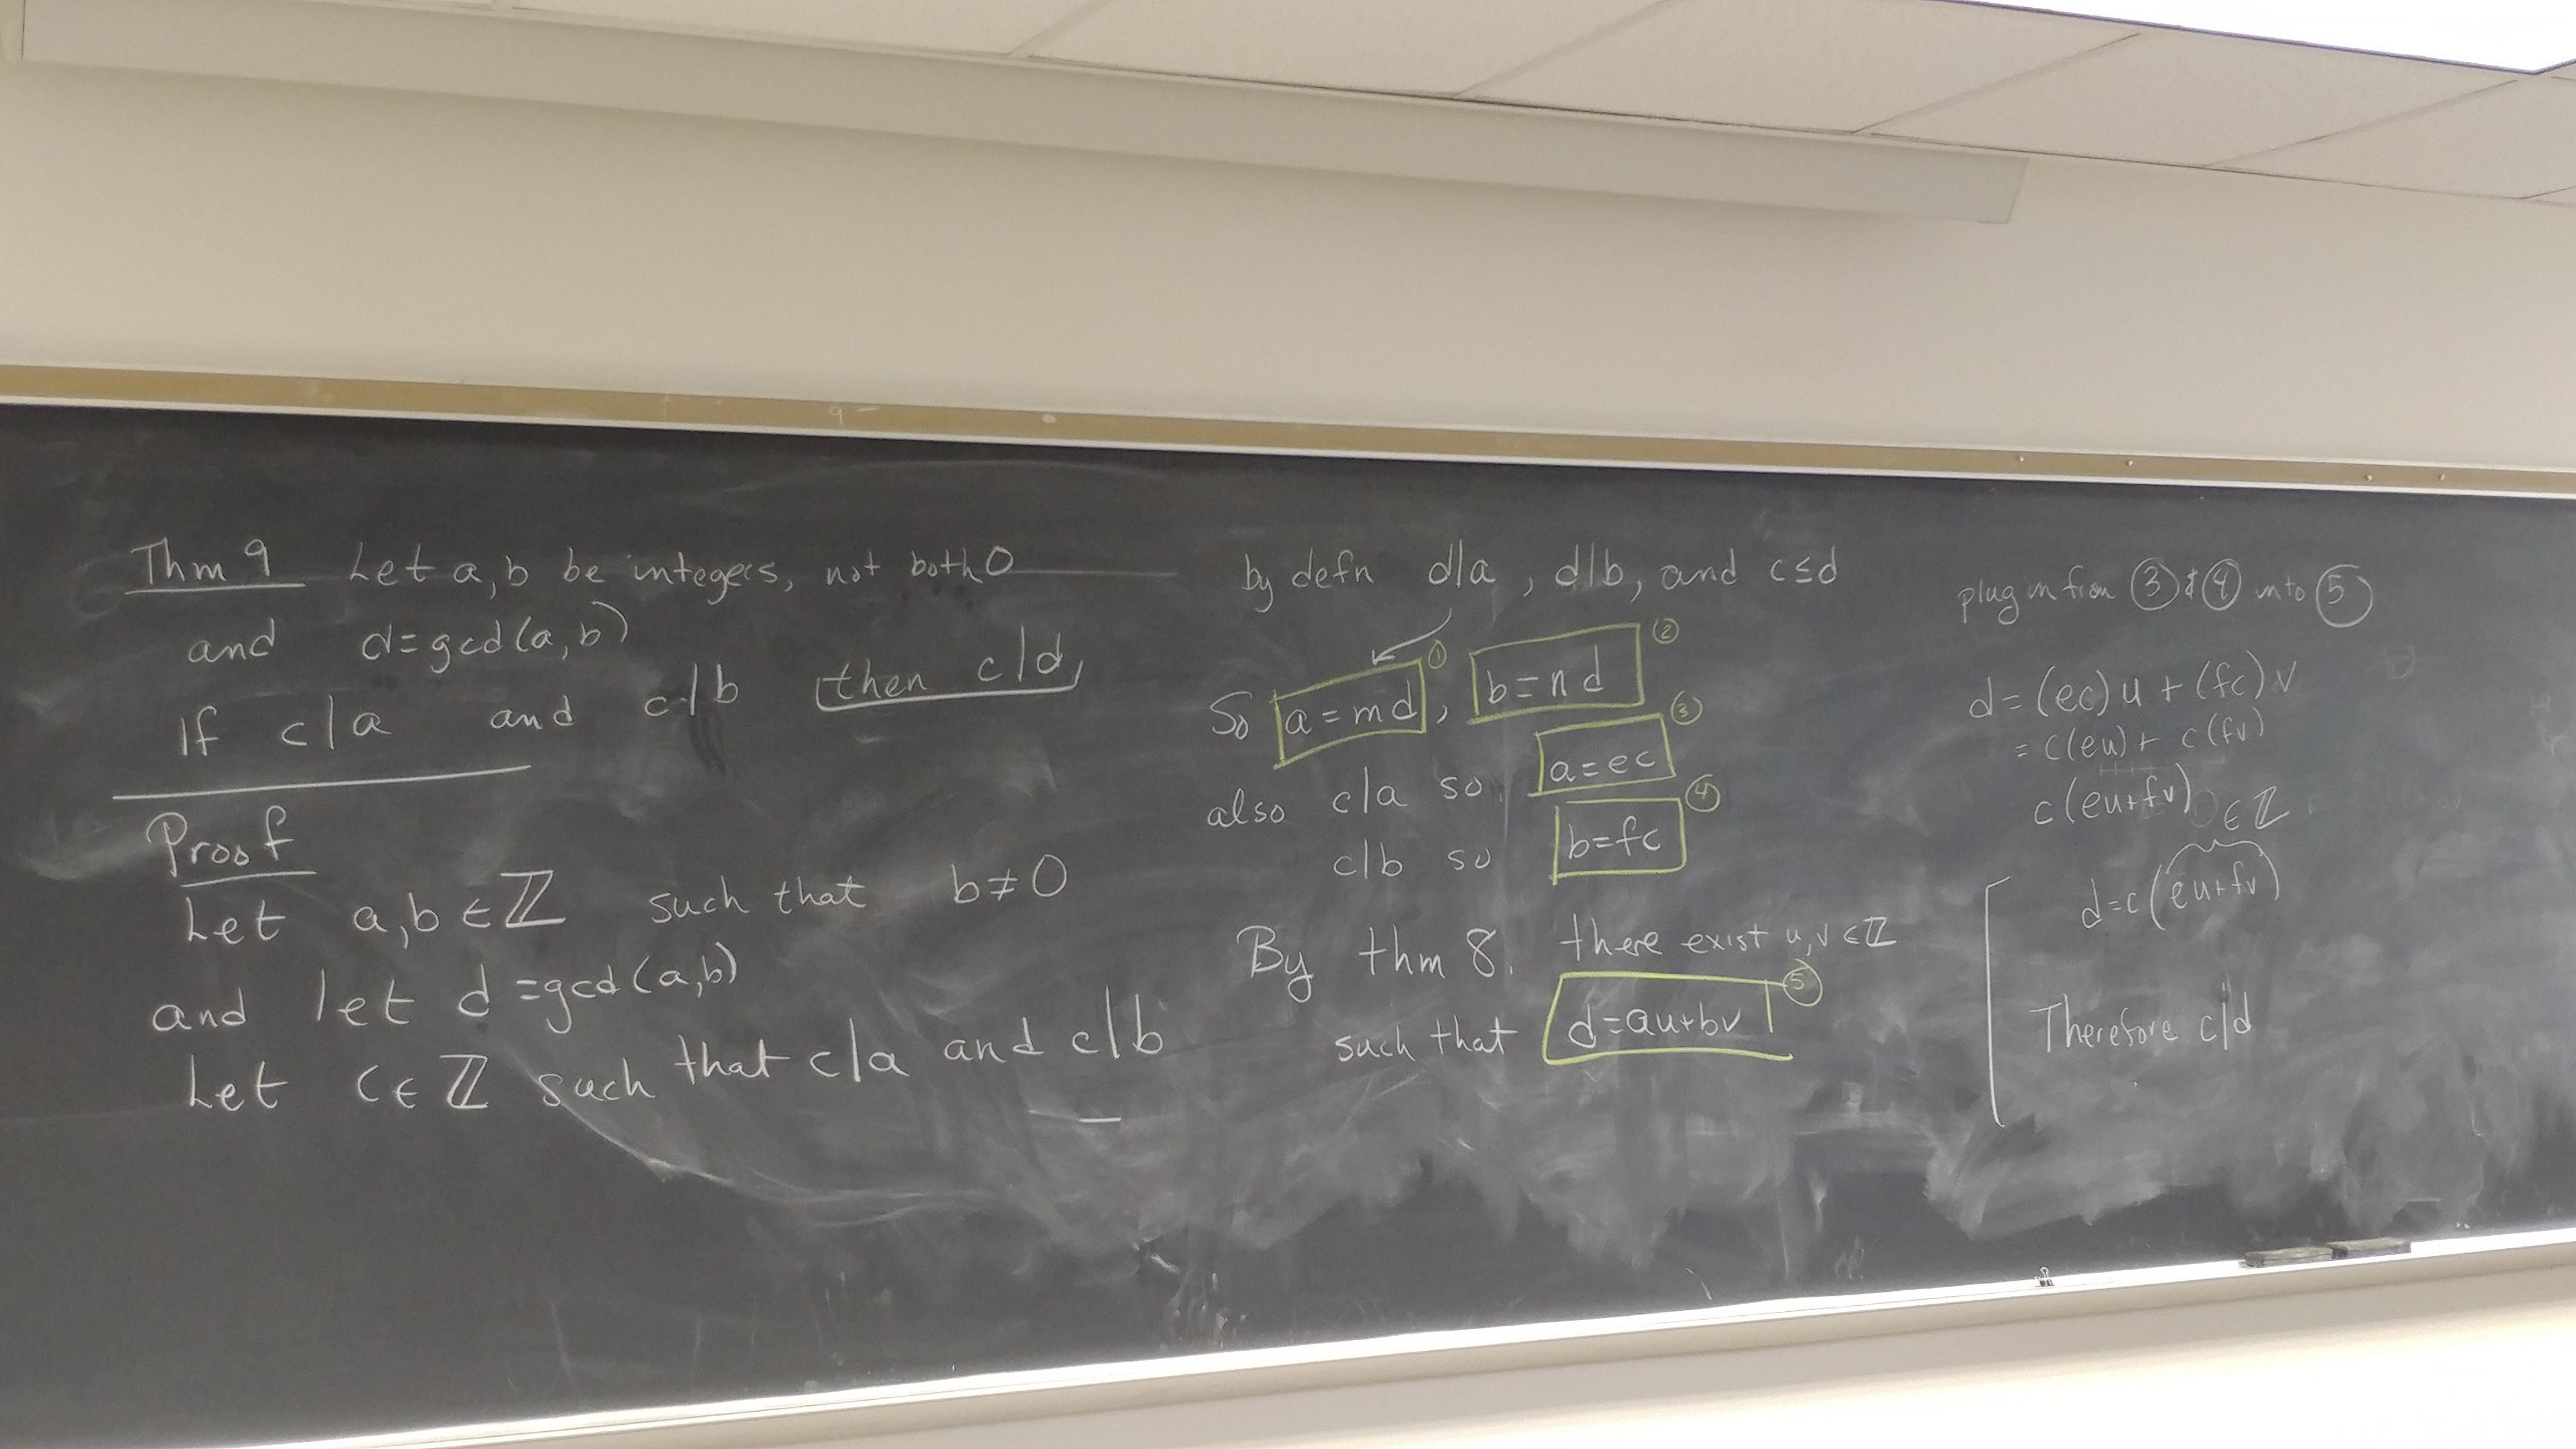 Thm 9 Let a, b be integers, not both 0
and d=gcd(a,b)
If c|a and c|b then c|d
Proof
Let a,b ∈ ℤ such that b≠0
and let d=gcd(a,b)
Let c∈ℤ such that c|a and c|b
by defn d|a, d|b, and c≤d
So a=md ①, b=nd ②
also c|a so a=ec ③
c|b so b=fc ④
By thm 8. there exist u,v∈ℤ
such that d=au+bv ⑤
plug in from ③ & ④ into ⑤
d=(ec)u+(fc)v
=c(eu)+c(fv)
c(eu+fv)
∈ℤ
d=c(eu+fv)
Therefore c|d